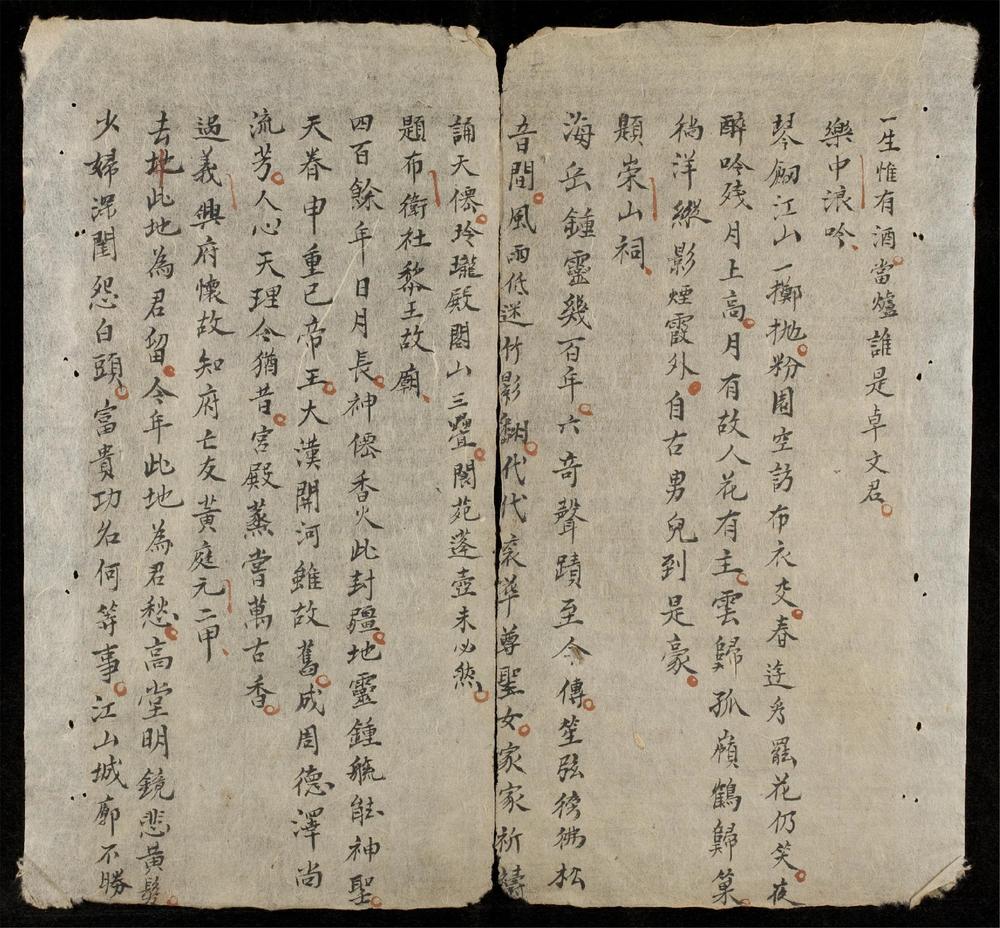 一生惟有酒當爐誰是卓文君
樂中浪吟
琴劒江山一擲抛粉園空訪布衣交春迳秀罷花仍笑夜
醉吟残月上高月有故人花有主雲歸孤嶺鶴歸巢
徜洋縱影煙霞外自古男兒到是豪
題崇山祠
海岳鍾靈幾百年六竒聲蹟至今傳笙弦彷彿松
音間風雨低迷竹影翻代代衮華尊聖女家家祈禱
誦天僊玲瓏殿閣山三疊閬苑蓬壺未必然
題布衛社黎王故廟
四百餘年日月長神僊香火此封疆地靈鍾毓能神聖
天眷申重已帝王大漢開河雖故舊成周德澤尚
流芳人心天理今猶昔宮殿蒸嘗萬古香
過義興府懷故知府亡友黃庭元二甲
去此地為君留今年此地為君愁高堂明鏡悲黃髮
少婦深閨怨白頭富貴功名何等事江山城廓不勝